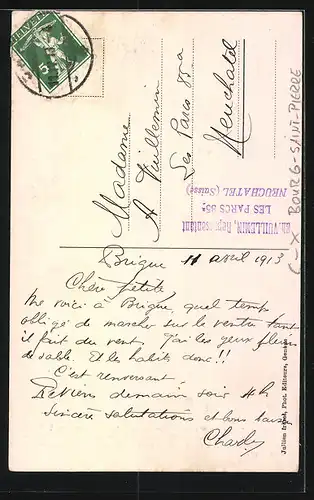 HELVETIA
5
Madame
A Vuillemin
Les Parcs 85a
Neuchatel
Ch. VUILLEMIN, Représentant
LES PARCS 85a
NEUCHATEL (Suisse)
C-X BOURG-SAINT-PIERRE
Brigue 11 avril 1913
Chère petite
Me voici à Brigue, quel temps
obligé de marcher sur le ventre tant
il fait du vent. J'ai les yeux pleins
de sable. Et les habits donc!!
C'est renversant.
Reviens demain soir 4h
Sincère salutations et bons baisers
Charles
Jullien frères, Phot. Editeurs, Genève